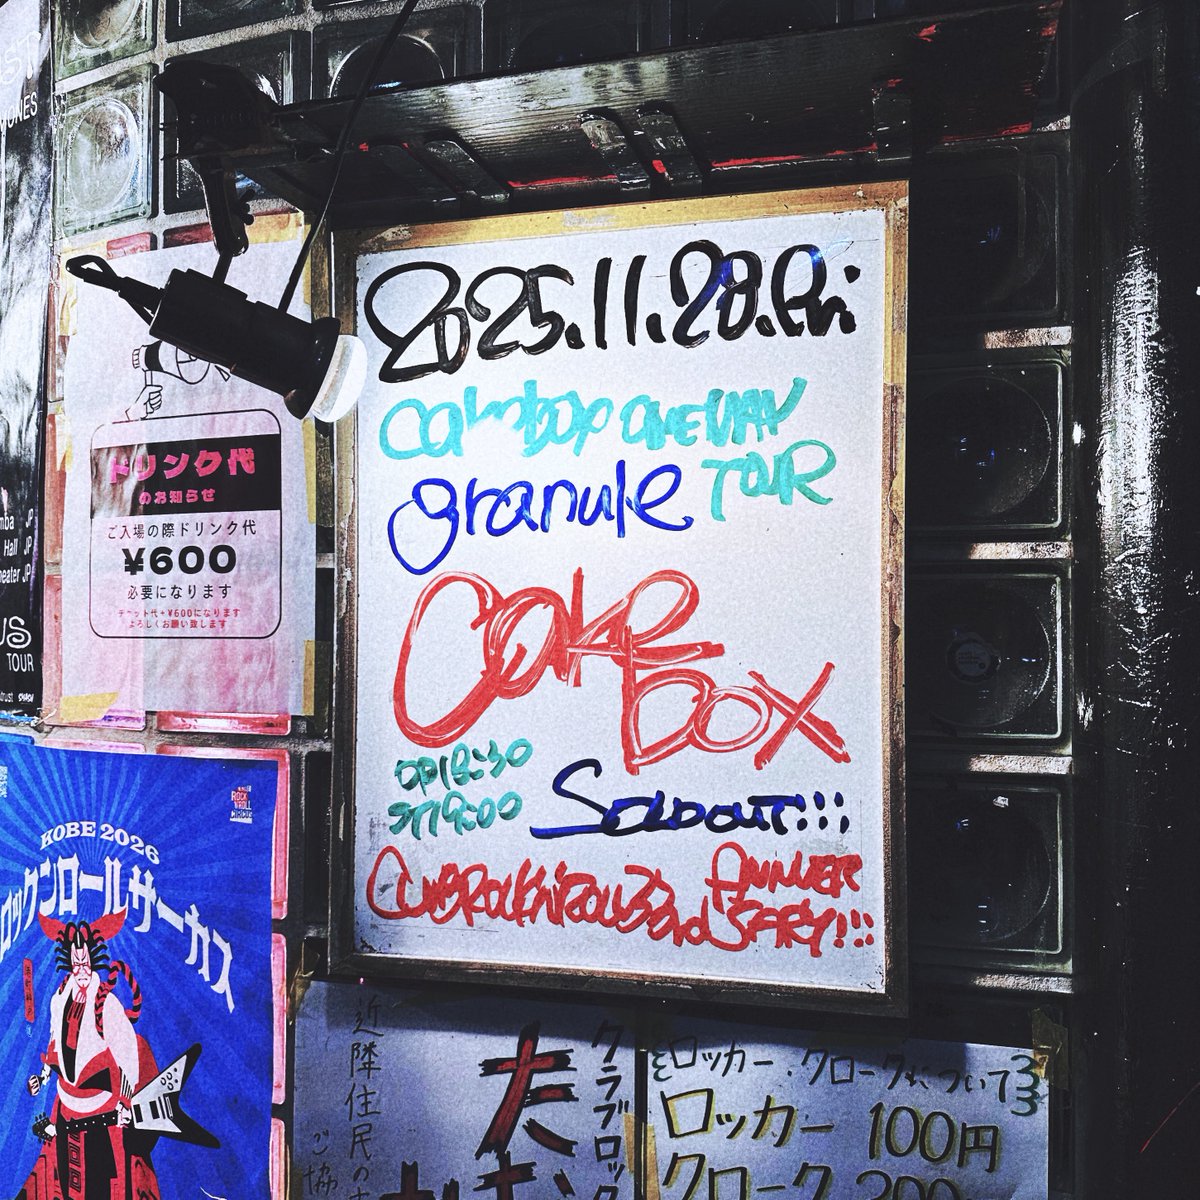 2025.11.28.Fri
cakebox ONEMAN
TOUR
granule
Cake
Box
OP18:30
ST19:00
SOLDOUT!!!
CLUBROCK'N'ROLL33rd ANNIVER
SARY!!!
ドリンク代
のお知らせ
ご入場の際ドリンク代
¥600
必要になります
チケット代+¥600になります
よろしくお願い致します
TOUR
KOBE 2026
ロックンロールサーカス
ROCK
N'ROLL
CIRCUS
近隣住民の
ご協
クラブロック
ロッカー・クロークについて
ロッカー 100円
クローク 300
Hall JP
JP